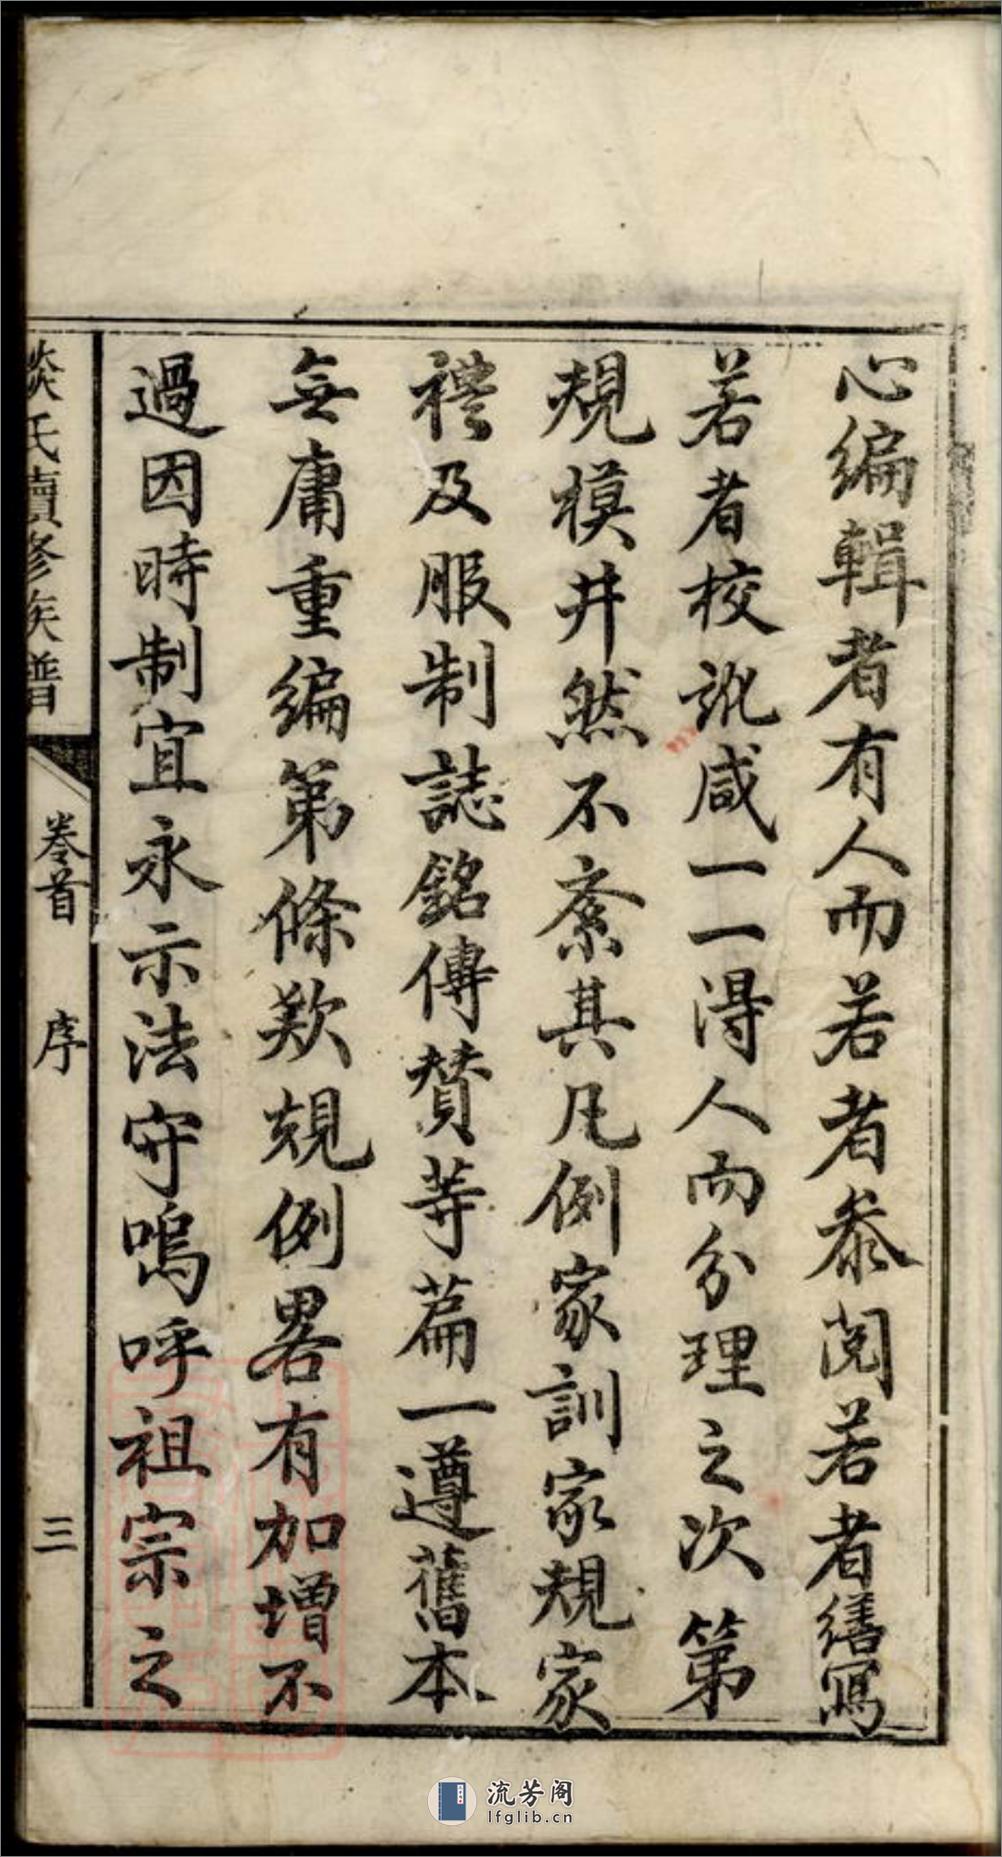 心編輯者有人而若者參閱若者繕寫
若者校訛咸一一得人而分理之次第
規模井然不紊其凡例家訓家規家
禮及服制誌銘傳贊等篇一遵舊本
無庸重編第條款規例畧有加增不
過因時制宜永示法守嗚呼祖宗之
氏續修族譜
卷首
序
三
流芳阁
lfglib.cn